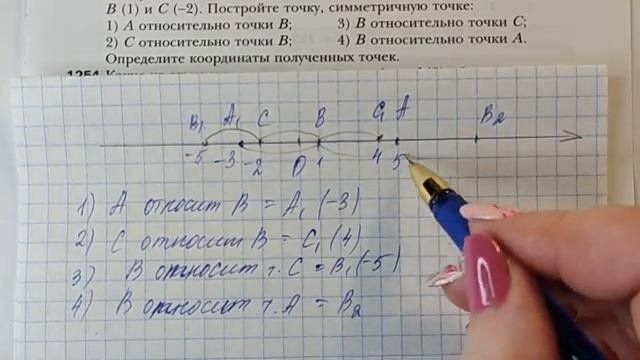 В (1) и С (−2). Постройте точку, симметричную точке:
1) А относительно точки В; 3) В относительно точки С;
2) С относительно точки В; 4) В относительно точки А.
Определите координаты полученных точек.
1254
B₁ A₁ C B C₁ A B₂
-5 -3 -2 0 1 4 5
1) А относит В = А₁ (-3)
2) С относит В = С₁ (4)
3) В относит т. С = В₁ (-5)
4) В относит т. А = В₂